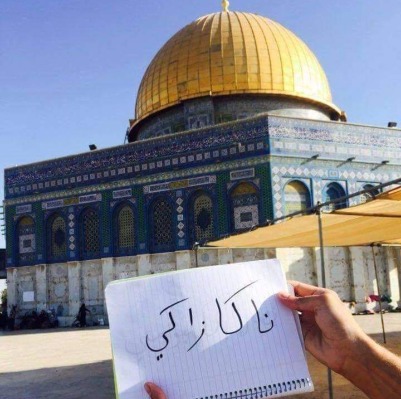 ناكازاكي